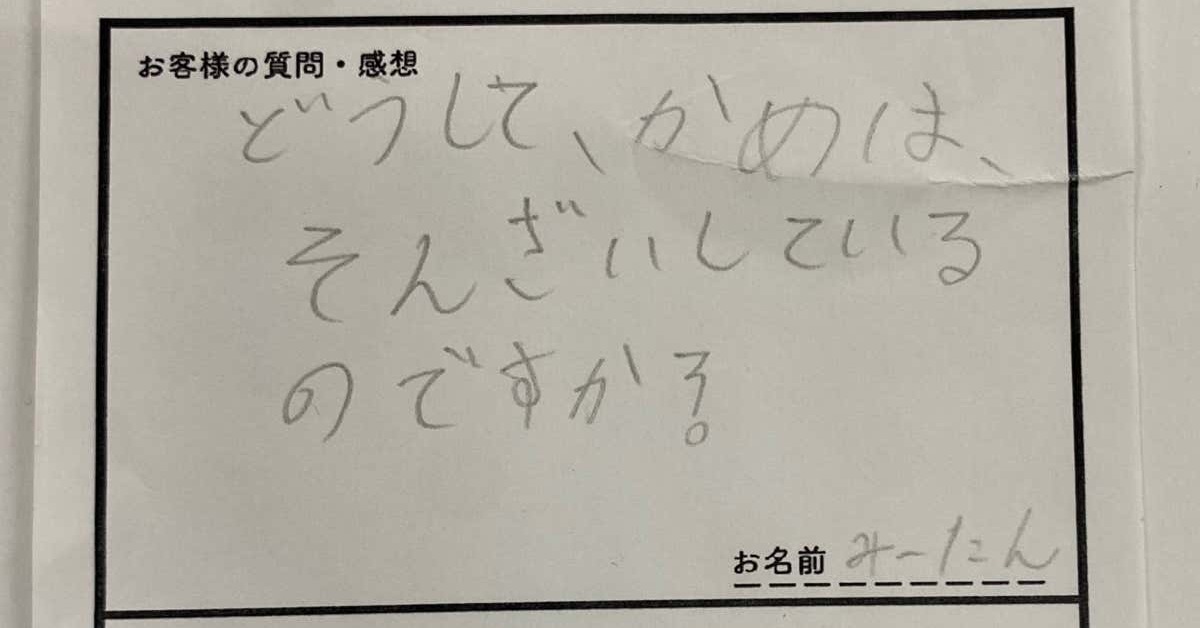 お客様の質問・感想
どうして、かめは、
そんざいしている
のですか?
お名前 みーたん